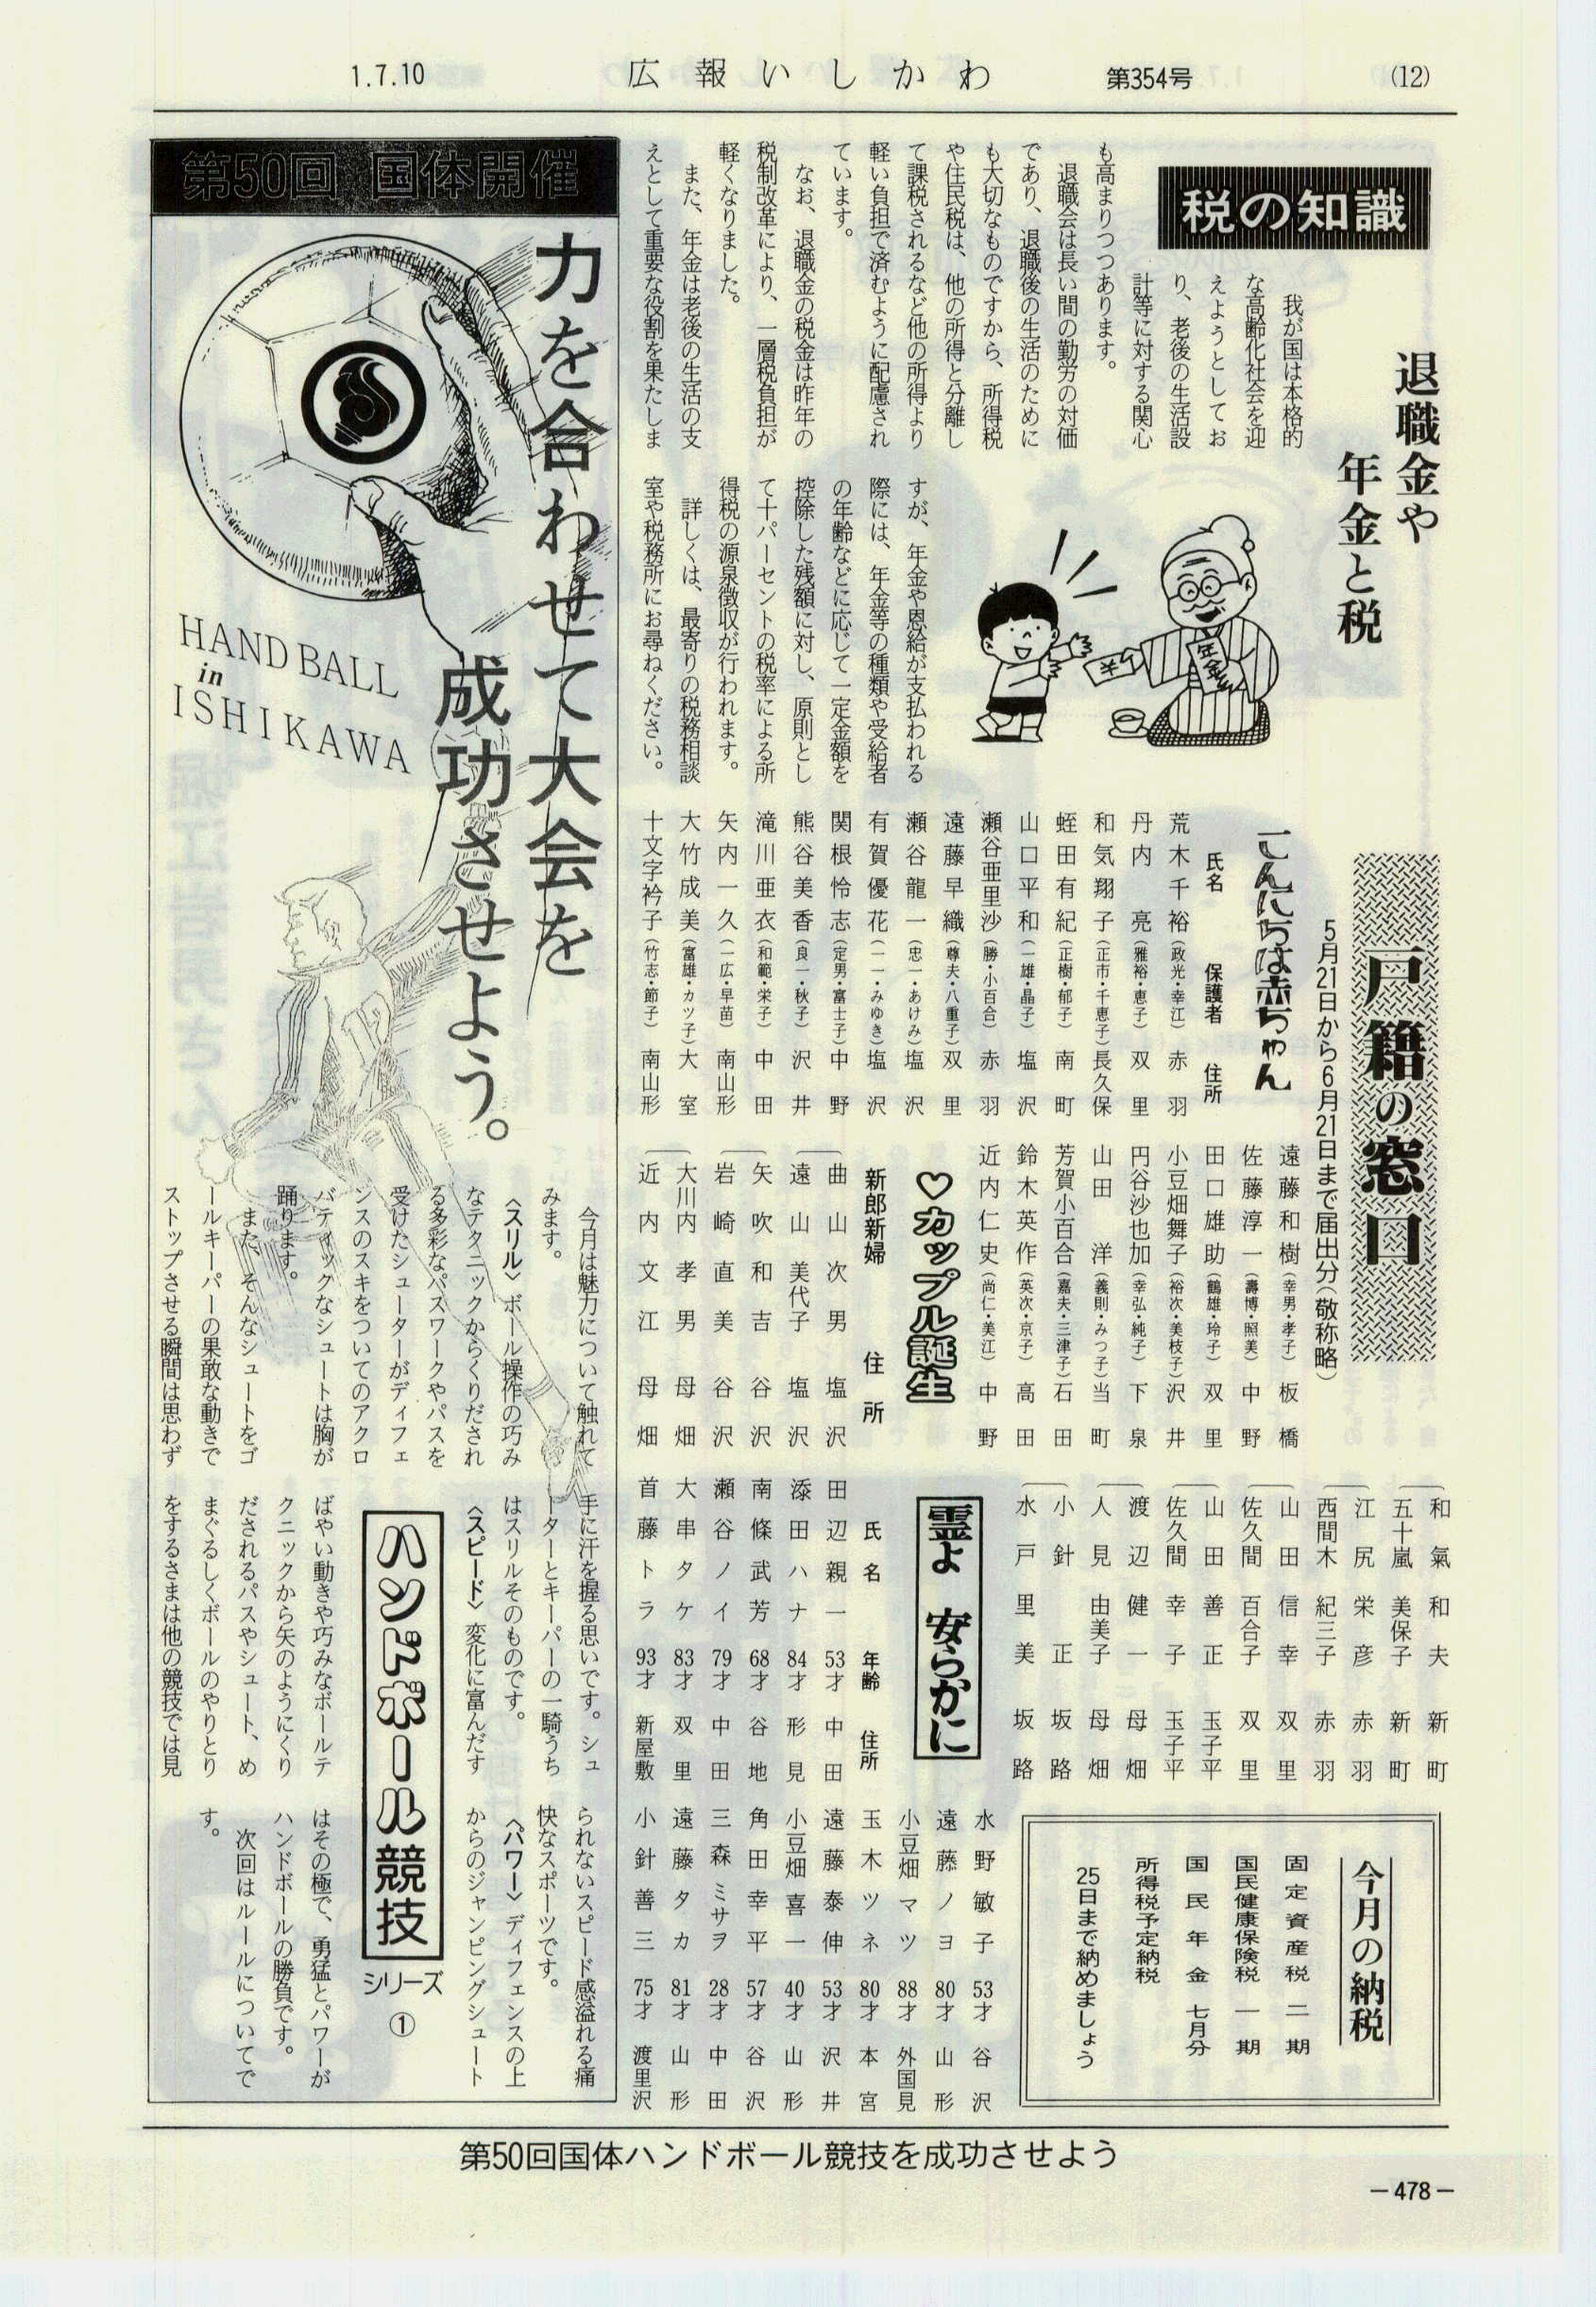 1.7.10
広報いしかわ
第354号
(12)
税の知識
退職金や
年金と税
我が国は本格的
な高齢化社会を迎
えようとしてお
り、老後の生活設
計等に対する関心
も高まりつつあります。
退職会は長い間の勤労の対価
であり、退職後の生活のために
も大切なものですから、所得税
や住民税は、他の所得と分離し
て課税されるなど他の所得より
軽い負担で済むように配慮され
ています。
なお、退職金の税金は昨年の
税制改革により、一層税負担が
軽くなりました。
また、年金は老後の生活の支
えとして重要な役割を果たしま
すが、年金や恩給が支払われる
際には、年金等の種類や受給者
の年齢などに応じて一定金額を
控除した残額に対し、原則とし
て十パーセントの税率による所
得税の源泉徴収が行われます。
詳しくは、最寄りの税務相談
室や税務所にお尋ねください。
年金
戸籍の窓口
5月21日から6月21日まで届出分(敬称略)
こんにちは赤ちゃん
氏名 保護者 住所
荒木千裕(政光・幸江)赤羽
丹内亮(雅裕・恵子)双里
和気翔子(正市・千恵子)長久保
蛭田有紀(正樹・郁子)南町
山口平和(一雄・晶子)塩沢
瀬谷亜里沙(勝・小百合)赤羽
遠藤早織(尊夫・八重子)双里
瀬谷龍一(忠一・あけみ)塩沢
有賀優花(一一・みゆき)塩沢
関根怜志(定男・富士子)中野
熊谷美香(良一・秋子)沢井
滝川亜衣(和範・栄子)中田
矢内一久(一広・早苗)南山形
大竹成美(富雄・カツ子)大室
十文字衿子(竹志・節子)南山形
遠藤和樹(幸男・孝子)板橋
佐藤淳一(壽博・照美)中野
田口雄助(鶴雄・玲子)双里
小豆畑舞子(裕次・美枝子)沢井
円谷沙也加(幸弘・純子)下泉
山田洋(義則・みつ子)当町
芳賀小百合(嘉夫・三津子)石田
鈴木英作(英次・京子)高田
近内仁史(尚仁・美江)中野
♡カップル誕生
新郎新婦 住所
曲山次男 塩沢
遠山美代子 塩沢
矢吹和吉 谷沢
岩崎直美 谷沢
大川内孝男 母畑
近内文江 母畑
和氣和夫 新町
五十嵐美保子 新町
江尻栄彦 赤羽
西間木紀三子 赤羽
山田信幸 双里
佐久間百合子 双里
山田善正 玉子平
佐久間幸子 玉子平
渡辺健一 母畑
人見由美子 母畑
小針正 坂路
水戸里美 坂路
霊よ 安らかに
氏名 年齢 住所
田辺親一 53才 中田
添田ハナ 84才 形見
南條武芳 68才 谷地
瀬谷ノイ 79才 中田
大串タケ 83才 双里
首藤トラ 93才 新屋敷
水野敏子 53才 谷沢
遠藤ノヨ 80才 山形
小豆畑マツ 88才 外国見
玉木ツネ 80才 本宮
遠藤泰伸 53才 沢井
小豆畑喜一 40才 山形
角田幸平 57才 谷沢
三森ミサヲ 28才 中田
遠藤タカ 81才 山形
小針善三 75才 渡里沢
今月の納税
固定資産税 二期
国民健康保険税 一期
国民年金 七月分
所得税予定納税
25日まで納めましょう
第50回 国体開催
力を合わせて大会を
成功させよう。
HAND BALL
in
ISHIKAWA
ハンドボール競技
シリーズ①
今月は魅力について触れて
みます。
〈スリル〉ボール操作の巧み
なテクニックからくりだされ
る多彩なパスワークやパスを
受けたシューターがディフェ
ンスのスキをついてのアクロ
バティックなシュートは胸が
踊ります。
また、そんなシュートをゴ
ールキーパーの果敢な動きで
ストップさせる瞬間は思わず
手に汗を握る思いです。シュ
ーターとキーパーの一騎うち
はスリルそのものです。
〈スピード〉変化に富んだす
ばやい動きや巧みなボールテ
クニックから矢のようにくり
だされるパスやシュート、め
まぐるしくボールのやりとり
をするさまは他の競技では見
られないスピード感溢れる痛
快なスポーツです。
〈パワー〉ディフェンスの上
からのジャンピングシュート
はその極で、勇猛とパワーが
ハンドボールの勝負です。
次回はルールについてで
す。
第50回国体ハンドボール競技を成功させよう
―478―